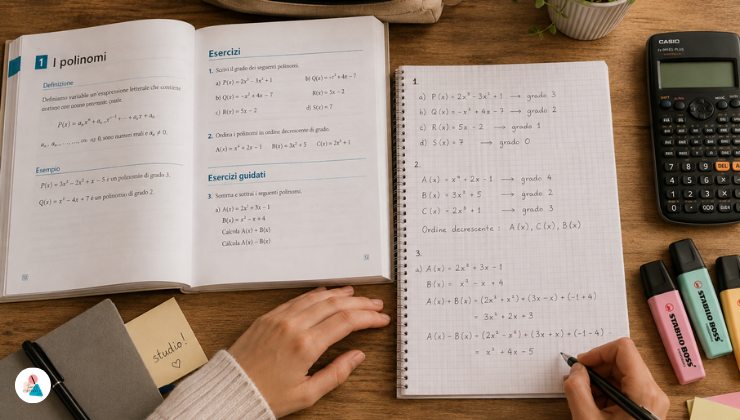 1 I polinomi
Definizione
Definiamo variabile un'espressione letterale che contiene
P(x) = aₙxⁿ + aₙ₋₁xⁿ⁻¹ + ⋯ + a₁x + a₀
sono numeri reali e
Esempio
P(x) = 3x³ − 2x² + x − 5 è un polinomio di grado 3.
Q(x) = x² − 4x + 7 è un polinomio di grado 2.
Esercizi
1. Scrivi il grado dei seguenti polinomi.
a) P(x) = 2x³ − 3x² + 1
b) Q(x) = −x² + 4x − 7
b) Q(x) = −x² + 4x − 7
R(x) = 5x − 2
c) R(x) = 5x − 2
d) S(x) = 7
2. Ordina i polinomi in ordine decrescente di grado.
A(x) = x⁴ + 2x − 1 B(x) = 3x² + 5 C(x) = 2x³ + 1
Esercizi guidati
3. Somma e sottrai i seguenti polinomi.
a) A(x) = 2x² + 3x − 1
B(x) = x² − x + 4
Calcola A(x) + B(x)
Calcola A(x) − B(x)
1.
a) P(x) = 2x³ − 3x² + 1 → grado 3
b) Q(x) = −x² + 4x − 7 → grado 2
c) R(x) = 5x − 2 → grado 1
d) S(x) = 7 → grado 0
2.
A(x) = x⁴ + 2x − 1 → grado 4
B(x) = 3x² + 5 → grado 2
C(x) = 2x³ + 1 → grado 3
Ordine decrescente : A(x), C(x), B(x)
3.
a) A(x) = 2x² + 3x − 1
B(x) = x² − x + 4
A(x) + B(x) = (2x² + x²) + (3x − x) + (−1 + 4)
= 3x² + 2x + 3
A(x) − B(x) = (2x² − x²) + (3x + x) + (−1 − 4)
= x² + 4x − 5
studio!
CASIO
DEL
AC
7 8 9
4 5 6
1 2 3
0
STABILO BOSS
STABILO BOSS
STABILO BOSS